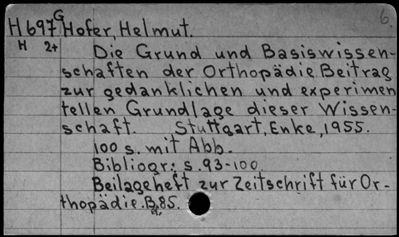 6.
H697 G Hofer, Helmut.
H 2+ Die Grund und Basiswissen-
schaften der Orthopädie. Beitrag
zur gedanklichen und experimen
tellen Grundlage dieser Wissen-
schaft. Stuttgart, Enke, 1955.
100 s. mit Abb.
Bibliogr.: s. 93-100.
Beilageheft zur Zeitschrift für Or-
thopädie. Bd. 85.